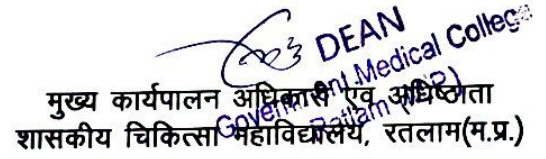 DEAN
Government Medical College
Ratlam (M.P.)
मुख्य कार्यपालन अधिकारी एवं अधिष्ठाता
शासकीय चिकित्सा महाविद्यालय, रतलाम(म.प्र.)